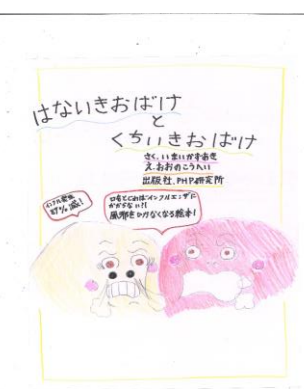 はないきおばけ
と
くちいきおばけ
さく、いまいかずあき
え、おおのこうへい
出版社、PHP研究所
インフル発症
87%減!
口をとじればインフルエンザに
かからない?!
風邪をひかなくなる絵本!